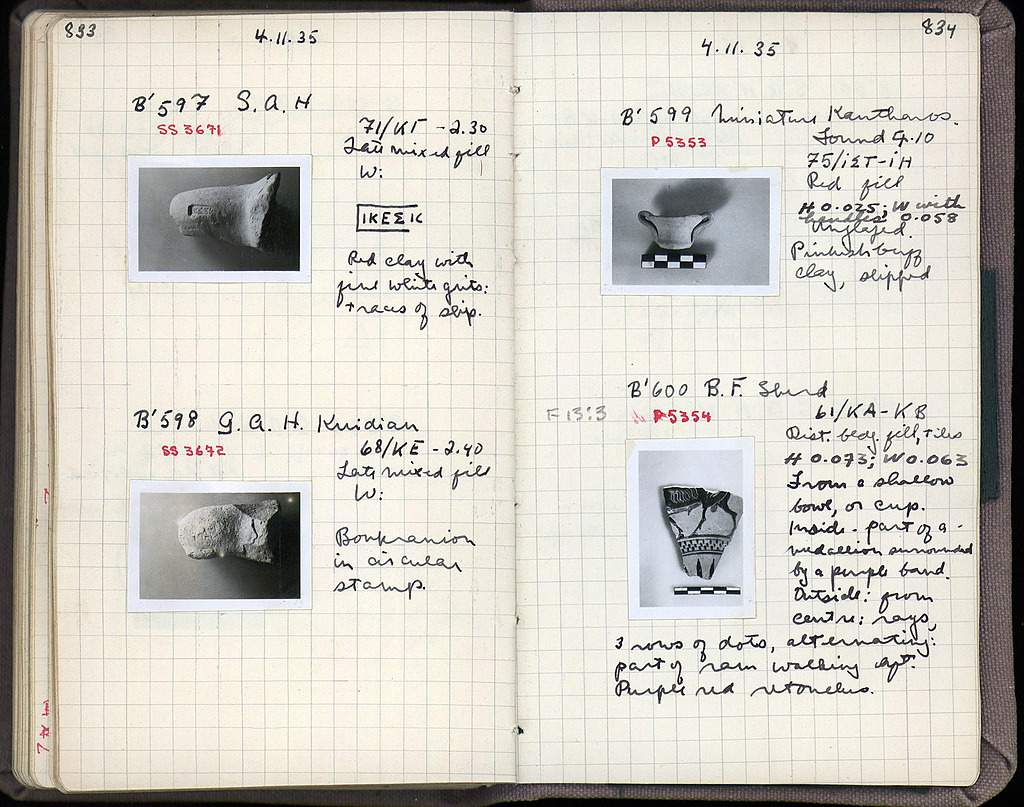 833
4.11.35
B'597 S.A.H
SS 3671
71/ΚΓ -2.30
Late mixed fill
W:
ΙΚΕΣΙΚ
Red clay with
fine white grits:
traces of slip.
B'598 G.A.H. Knidian
SS 3672
68/ΚΕ -2.40
Late mixed fill
W:
Boukranion
in circular
stamp.
834
4.11.35
B'599 Miniature Kantharos.
P 5353
Found 4.10
75/ΙΣΤ-ΙΗ
Red fill
H 0.025; W with
handles, 0.058
Unglazed.
Pinkish buff
clay, slipped
B'600 B.F. Sherd
F 13:3
P 5354
61/ΚΑ-ΚΒ
Dist. bldg. fill, tiles
H 0.073; W 0.063
From a shallow
bowl, or cup.
Inside - part of a
medallion surrounded
by a purple band.
Outside: from
centre: rays,
3 rows of dots, alternating:
part of ram walking
Purple red retouches.